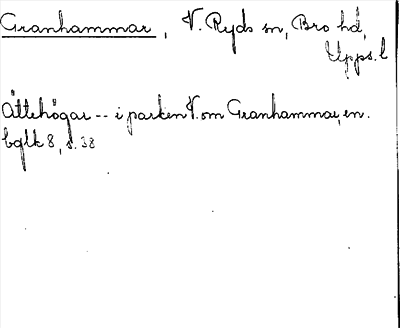 Granhammar, V. Ryds sn, Bro hd,
Upps. l
Ättehögar -- i parken V. om Granhammar, en.
bglk 8, s. 38